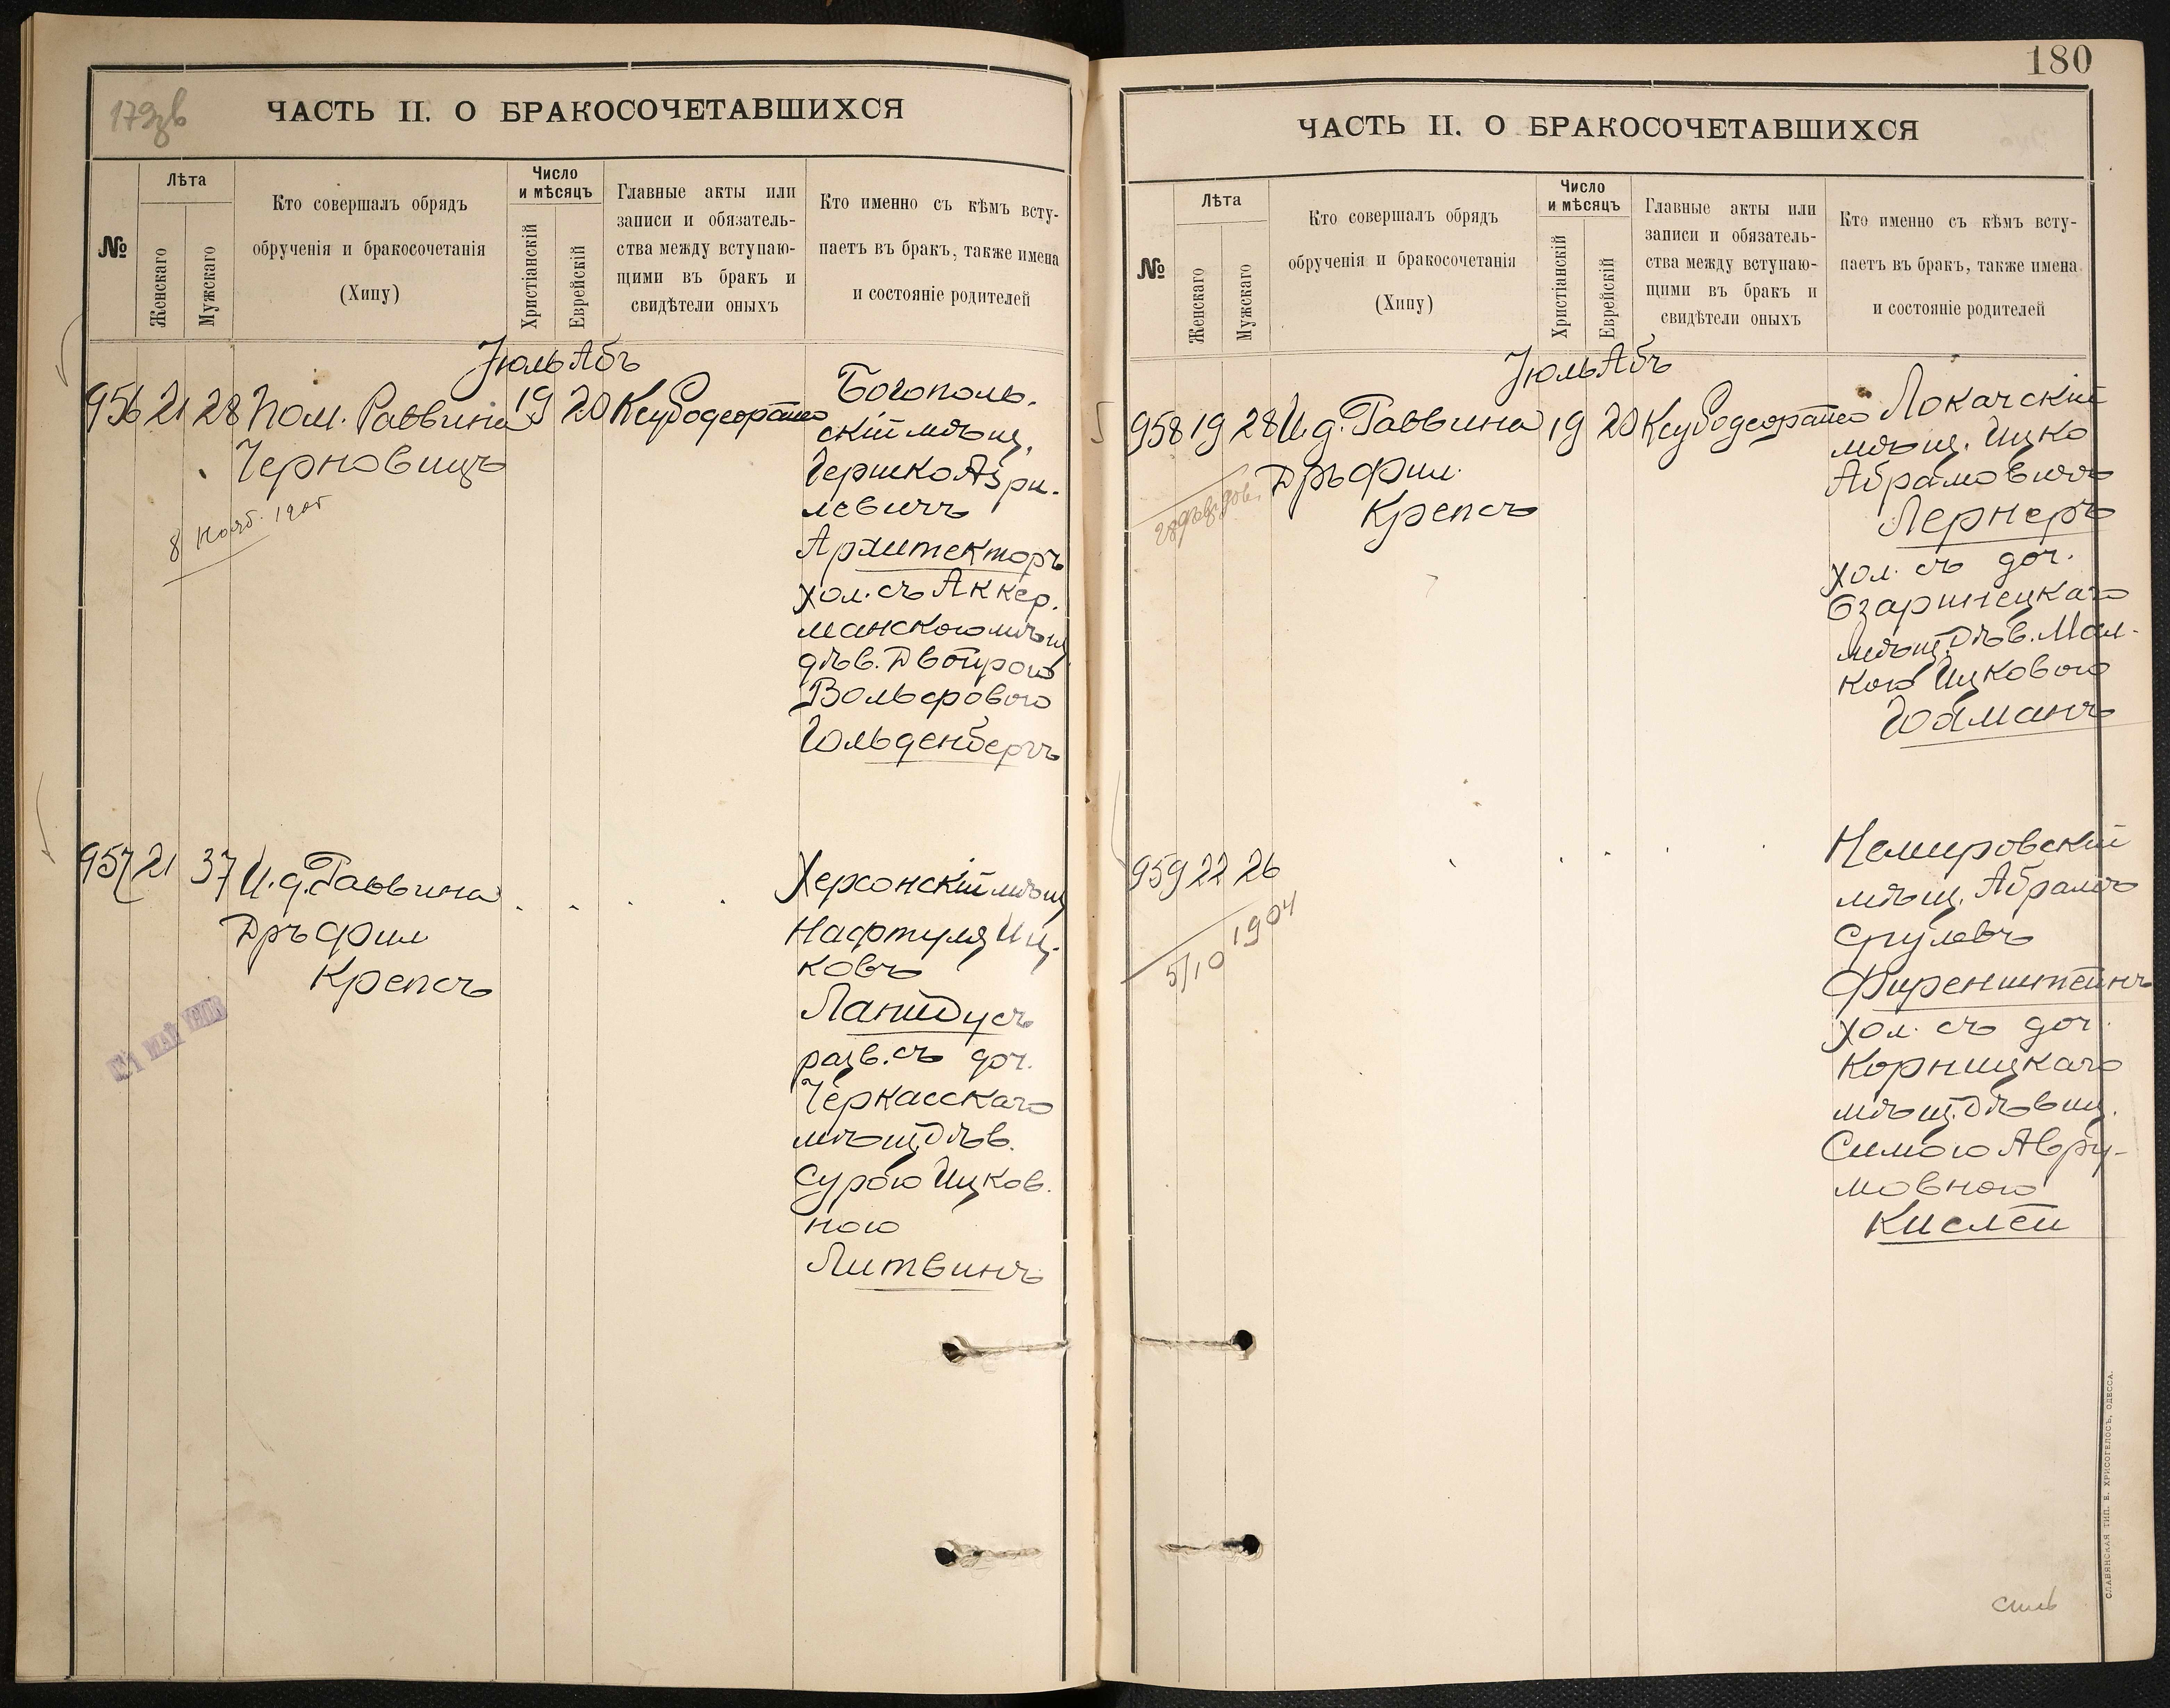 179зв
ЧАСТЬ II. О БРАКОСОЧЕТАВШИХСЯ
№
Лѣта
Женскаго
Мужскаго
Кто совершалъ обрядъ
обрученія и бракосочетанія
(Хипу)
Число
и мѣсяцъ
Христіанскій
Еврейскій
Главные акты или
записи и обязатель-
ства между вступаю-
щими въ бракъ и
свидѣтели оныхъ
Кто именно съ кѣмъ всту-
паетъ въ бракъ, также имена
и состояніе родителей
Іюль Абъ
956 21 28 Пом. Раввина 19 20
Черновицъ
8 Нояб. 1905
Богополь-
скій мѣщ.
Гершко Азри-
левичъ
Архитекторъ
хол. съ Аккер.
манскою мѣщ
дѣв. Двойрою
Вольфовою
Гольденбергъ
957 21 37 И. д. Раввина
Дръ Фил
Крепсъ
МАЙ
Херсонскій мѣщ
Нафтуля Иц-
ковъ
Лапидусъ
разв. съ доч.
Черкасскаго
мѣщ. дѣв.
Сурою Ицков.
ною
Литвинъ
180
ЧАСТЬ II. О БРАКОСОЧЕТАВШИХСЯ
№
Лѣта
Женскаго
Мужскаго
Кто совершалъ обрядъ
обрученія и бракосочетанія
(Хипу)
Число
и мѣсяцъ
Христіанскій
Еврейскій
Главные акты или
записи и обязатель-
ства между вступаю-
щими въ бракъ и
свидѣтели оныхъ
Кто именно съ кѣмъ всту-
паетъ въ бракъ, также имена
и состояніе родителей
Іюль Абъ
958 19 28 И. д. Раввина 19 20
Дръ Фил.
Крепсъ
Локачскій
мѣщ. Ицко
Абрамовичъ
Лернеръ
хол. съ доч.
Озаринецкаго
мѣщ. дѣв. Мал-
кою Ицковою
Гойманъ
959 22 26
5/10 1904
Немировскій
мѣщ. Абрамъ
Срулевъ
Фиренштейнъ
хол. съ доч.
Корницкаго
мѣщ. дѣвиц.
Симою Авру-
мовною
Кислей
СЛАВЯНСКАЯ ТИП. Е. ХРИСОГЕЛОСЪ, ОДЕССА.